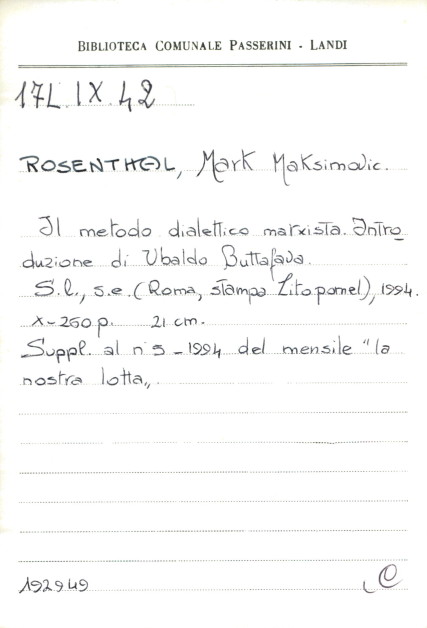 BIBLIOTECA COMUNALE PASSERINI - LANDI
17L.IX.42
ROSENTHAL, Mark Maksimovic.
Il metodo dialettico marxista. Intro
duzione di Ubaldo Buttafava.
S.l., s.e. (Roma, stampa Litopomel), 1994.
X-260 p. 21 cm.
Suppl. al n°5-1994 del mensile "la
nostra lotta„
192949
C